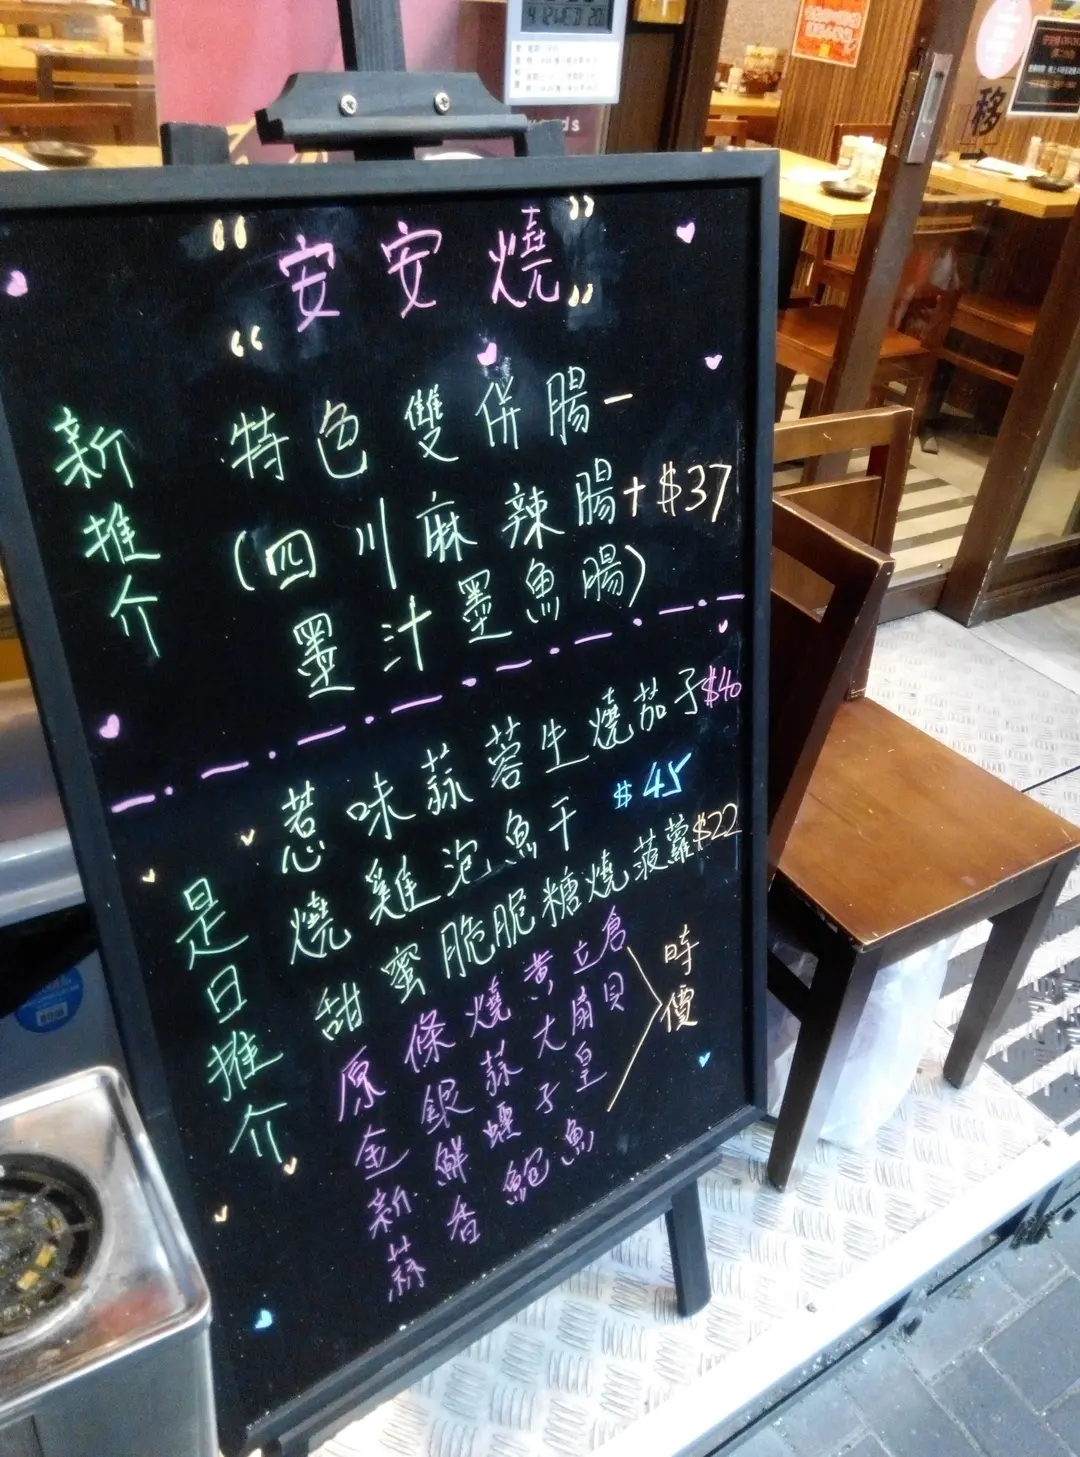 安安燒
新推介
特色雙併腸-
(四川麻辣腸+ $37
墨汁墨魚腸)
是日推介
惹味蒜蓉生燒茄子$40
燒雞泡魚干 $45
甜蜜脆脆糖燒菠蘿$22
原條燒黃立倉
金銀蒜大扇貝
新鮮蟶子皇
蒜香鮑魚
時價
移